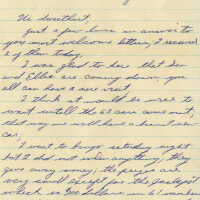 Hi Sweetheart,
Just a few lines in answer to
your most welcome letter, I received
today.
I was glad to hear that
and Ella are coming down, you
all can have a nice visit.
I think it would be nice to
wait until the 62 cars come out,
that way we will have a brand new
car.
I went to bingo saturday night
but I did not win anything, they
gave away money, the prizes are
very small except for the Jackpot
which is 700 dollars in 61 numbers